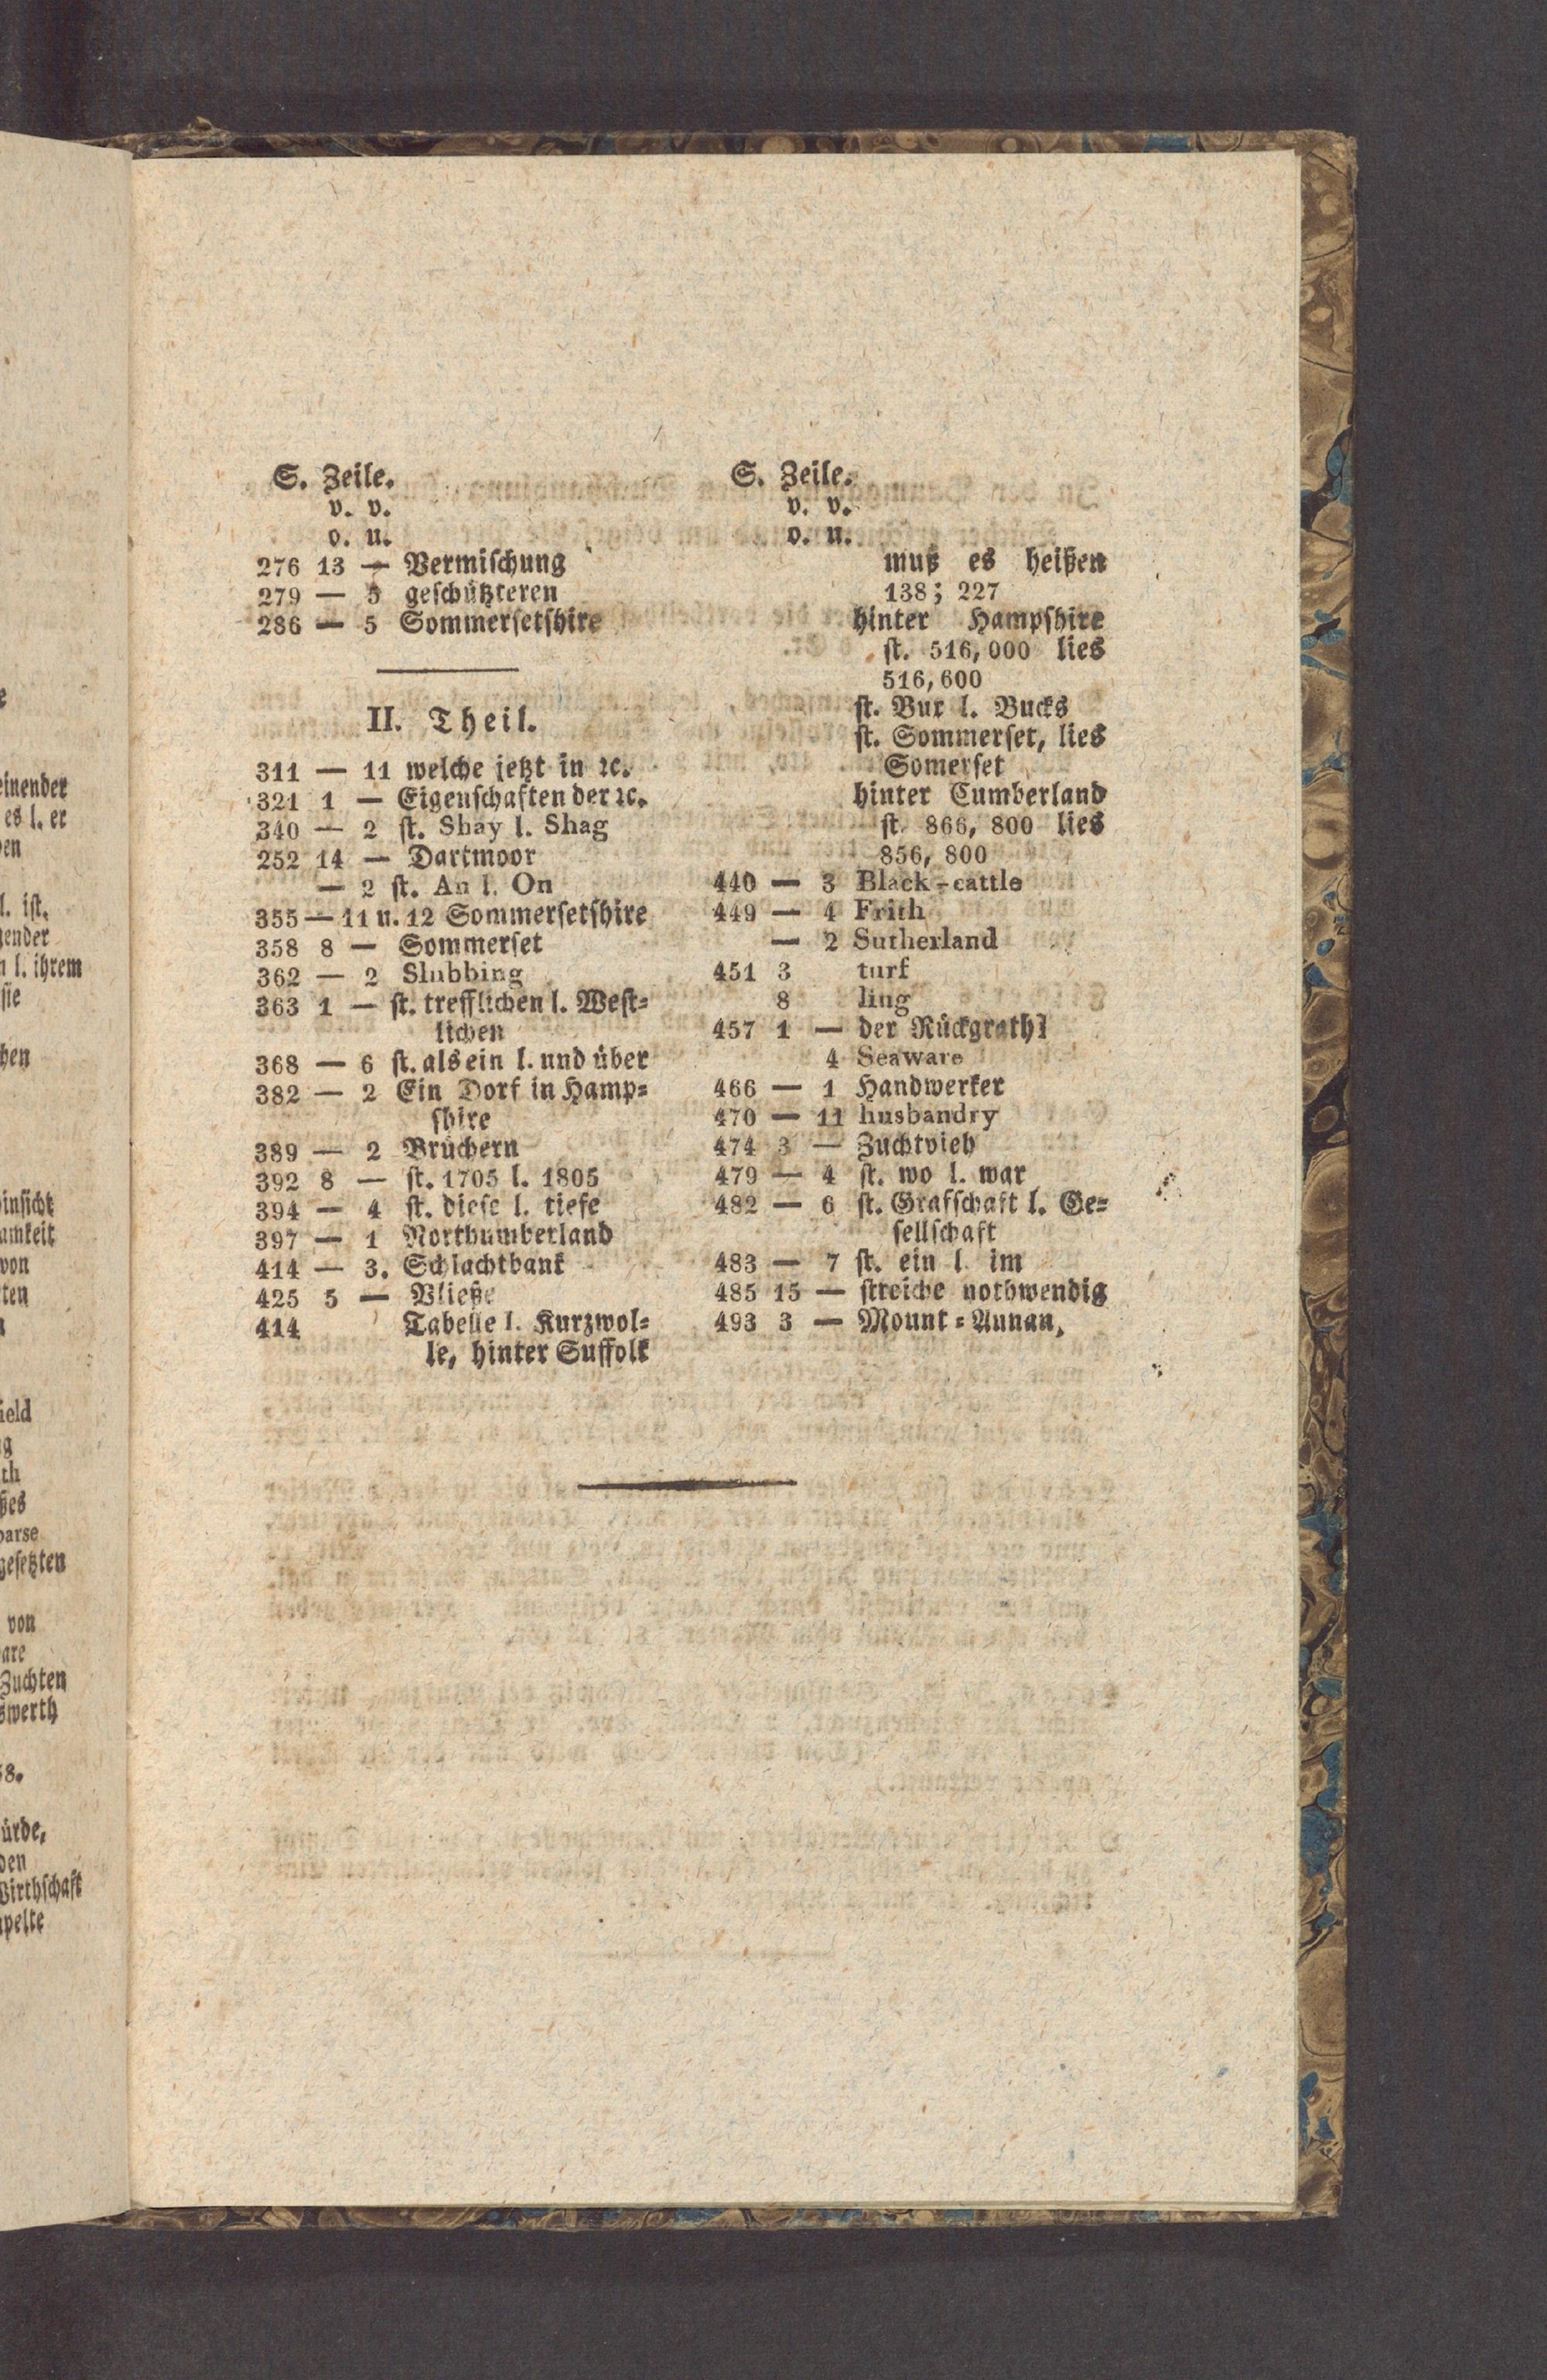 S. Zeile.
v. v.
o. u.
276 13 — Vermiſchung
279 — 5 geſchützteren
286 — 5 Sommerſetſhire
II. Theil.
311 — 11 welche jetzt in ꝛc.
321 1 — Eigenſchaften der ꝛc.
340 — 2 ſt. Shay l. Shag
252 14 — Dartmoor
— 2 ſt. An l. On
355 — 11 u. 12 Sommerſetſhire
358 8 — Sommerſet
362 — 2 Slubbing
363 1 — ſt. trefflichen l. Weſt⸗
lichen
368 — 6 ſt. als ein l. und über
382 — 2 Ein Dorf in Hamp⸗
ſhire
389 — 2 Brüchern
392 8 — ſt. 1705 l. 1805
394 — 4 ſt. dieſe l. tiefe
397 — 1 Northumberland
414 — 3. Schlachtbank
425 5 — Vließe
414 Tabelle l. Kurzwol⸗
le, hinter Suffolk
S. Zeile.
v. v.
o. u.
muß es heißen
138; 227
hinter Hampſhire
ſt. 516,000 lies
516,600
ſt. Bux l. Bucks
ſt. Sommerſet, lies
Somerſet
hinter Cumberland
ſt. 866, 800 lies
856, 800
440 — 3 Black-cattle
449 — 4 Frith
— 2 Sutherland
451 3 turf
8 ling
457 1 — der Rückgrath
4 Seaware
466 — 1 Handwerker
470 — 11 husbandry
474 3 — Zuchtvieh
479 — 4 ſt. wo l. war
482 — 6 ſt. Grafſchaft l. Ge⸗
ſellſchaft
483 — 7 ſt. ein l im
485 15 — ſtreiche nothwendig
493 3 — Mount⸗Annan,